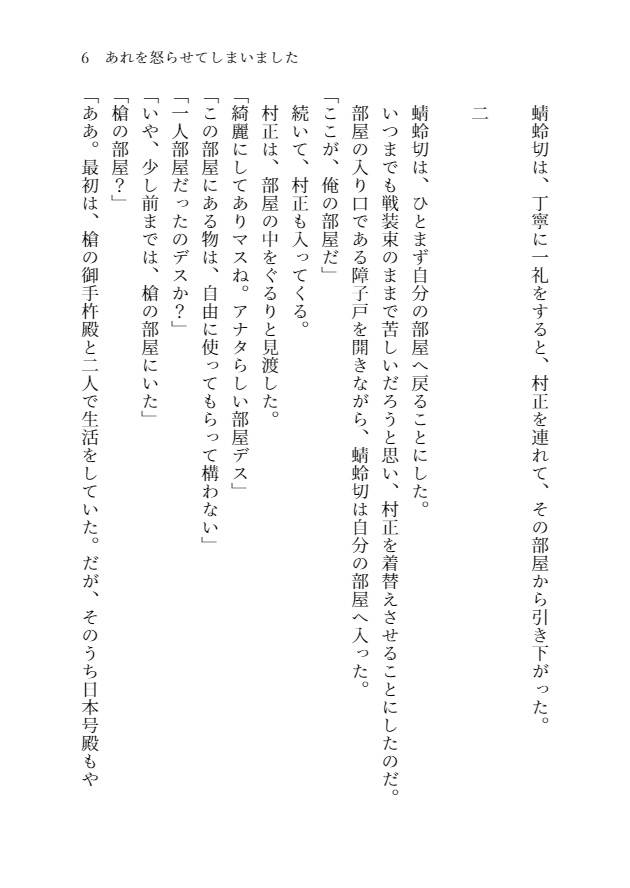 6　あれを怒らせてしまいました
蜻蛉切は、丁寧に一礼をすると、村正を連れて、その部屋から引き下がった。
二
蜻蛉切は、ひとまず自分の部屋へ戻ることにした。
いつまでも戦装束のままで苦しいだろうと思い、村正を着替えさせることにしたのだ。
部屋の入り口である障子戸を開きながら、蜻蛉切は自分の部屋へ入った。
「ここが、俺の部屋だ」
続いて、村正も入ってくる。
村正は、部屋の中をぐるりと見渡した。
「綺麗にしてありマスね。アナタらしい部屋デス」
「この部屋にある物は、自由に使ってもらって構わない」
「一人部屋だったのデスか？」
「いや、少し前までは、槍の部屋にいた」
「槍の部屋？」
「ああ。最初は、槍の御手杵殿と二人で生活をしていた。だが、そのうち日本号殿もや